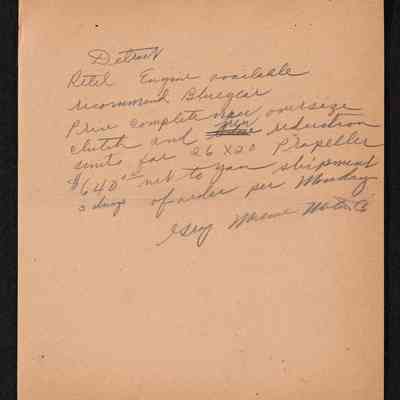 Detroit
Retel Engine available
recommend Bluegear
Price complete new oversize
clutch and new reduction
units for 26 x 20 Propeller
$640.00 net to you shipment
3 days of order per Monday
Gray Marine Motor Co